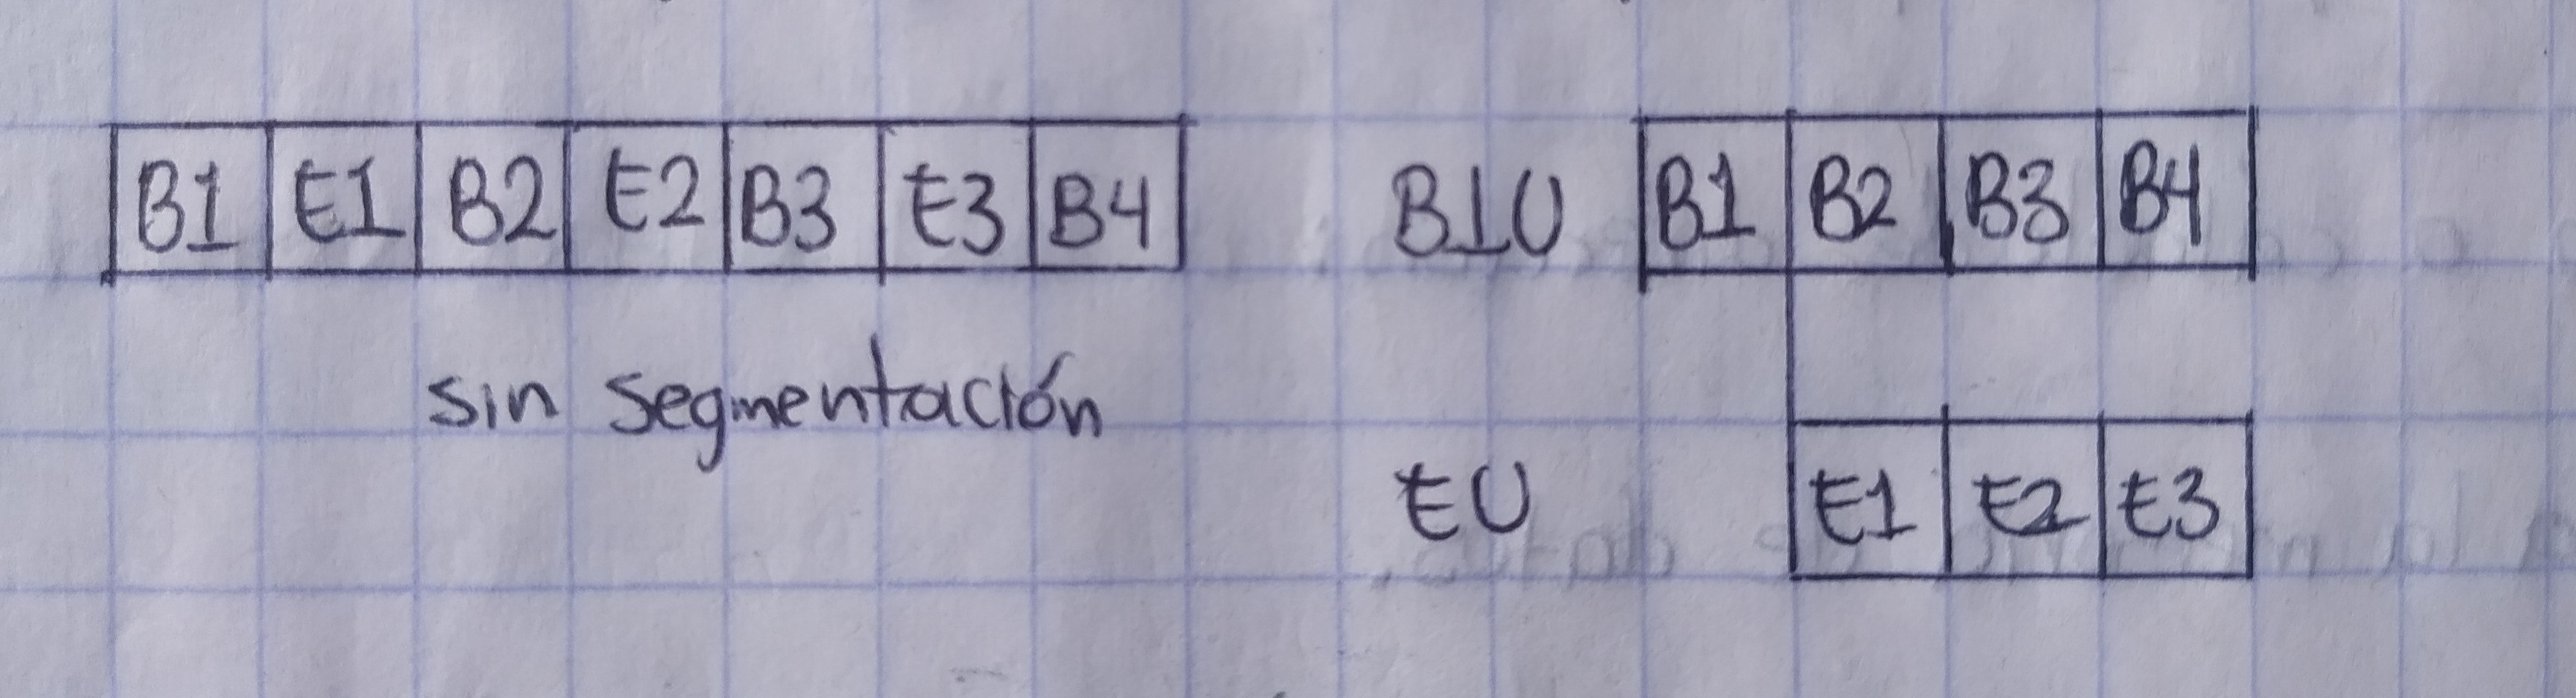 B1 E1 B2 E2 B3 E3 B4
sin segmentación
BIU B1 B2 B3 B4
EU E1 E2 E3